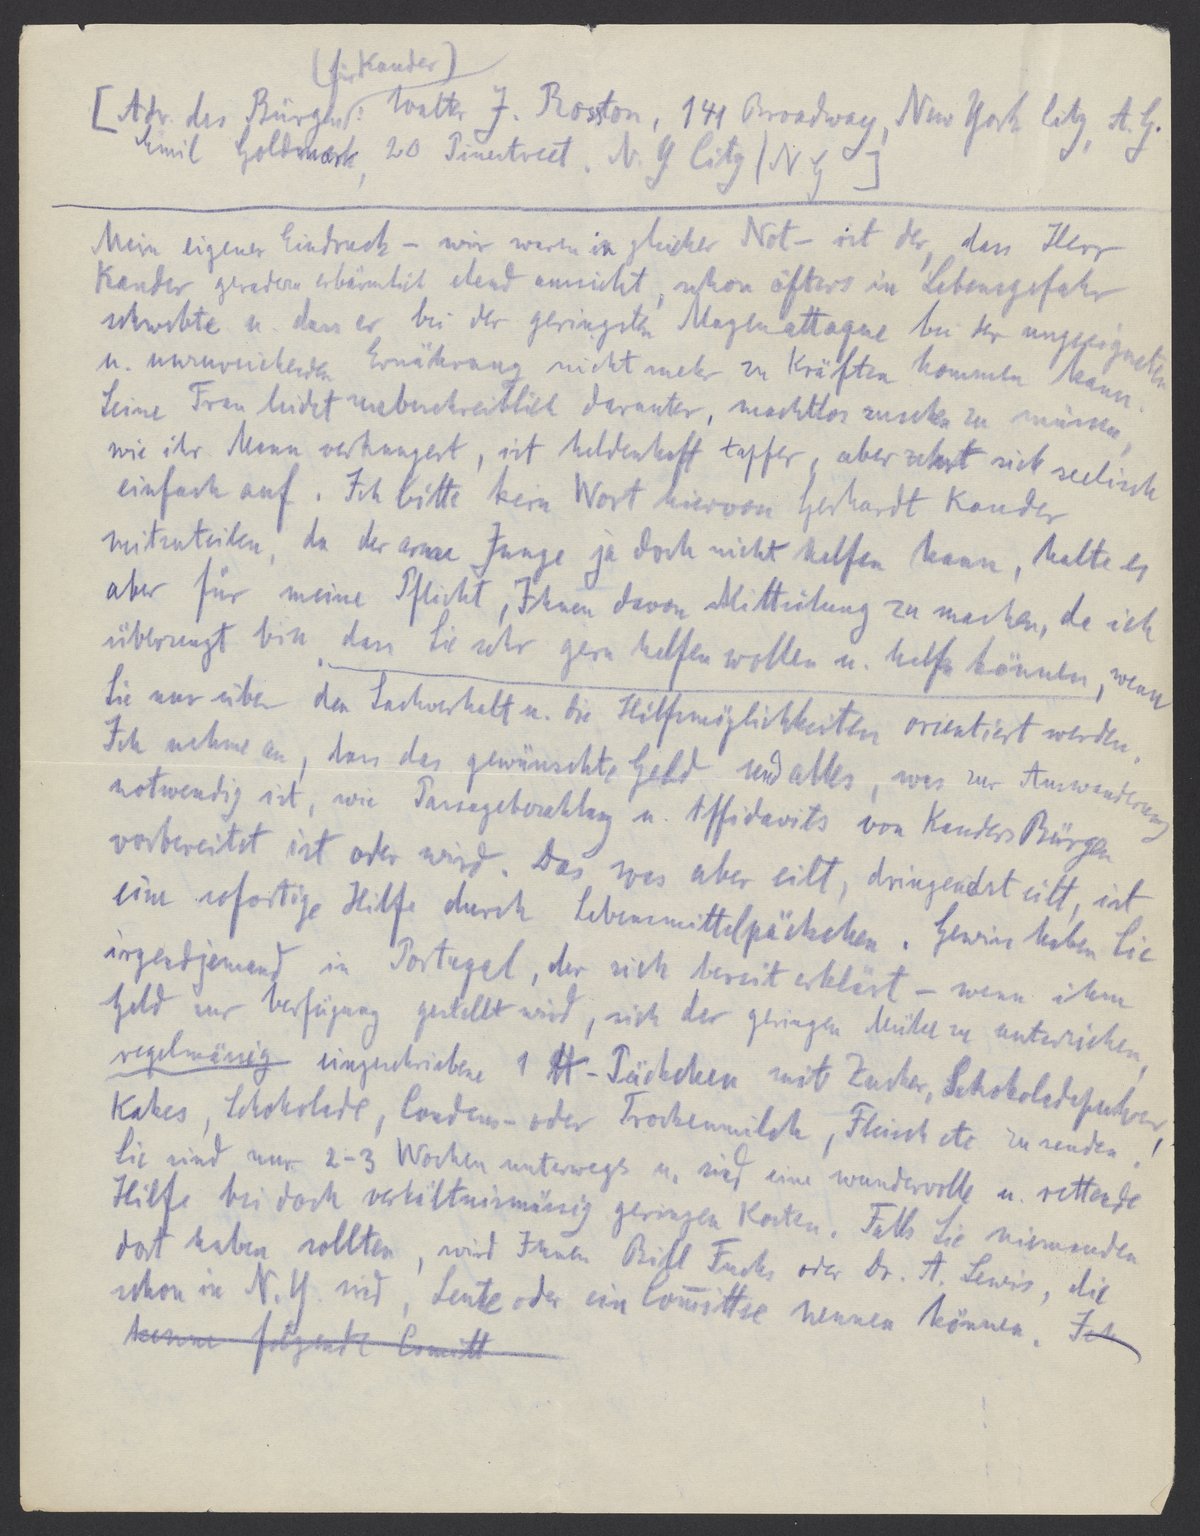 (für Kander)
[Adr. des Bürgen: Walter J. Rosston, 141 Broadway, New York City, A.G.
Emil Goldmark, 20 Pinestreet. N.Y City (N Y ]
Mein eigener Eindruck – wir waren in gleicher Not – ist der, dass Herr
Kander geradezu erbärmlich elend aussieht, schon öfters in Lebensgefahr
schwebte u. dass er bei der geringsten Magenattaque bei der ungeeigneten
u. unzureichenden Ernährung nicht mehr zu Kräften kommen kann.
Seine Frau leidet unbeschreiblich darunter, machtlos zusehen zu müssen,
wie ihr Mann verhungert, ist heldenhaft tapfer, aber zehrt sich seelisch
einfach auf. Ich bitte kein Wort hiervon Gerhardt Kander
mitzuteilen, da der arme Junge ja doch nicht helfen kann, halte es
aber für meine Pflicht, Ihnen davon Mitteilung zu machen, da ich
überzeugt bin, dass Sie sehr gern helfen wollen u. helfen können, wenn
Sie nur über den Sachverhalt u. die Hilfsmöglichkeiten orientiert werden.
Ich nehme an, dass das gewünschte Geld und alles, was zur Auswanderung
notwendig ist, wie Passagebezahlung u. Affidavits von Kanders Bürgen
vorbereitet ist oder wird. Das was aber eilt, dringendst eilt, ist
eine sofortige Hilfe durch Lebensmittelpäckchen. Gewiss haben Sie
irgendjemand in Portugal, der sich bereit erklärt – wenn ihm
Geld zur Verfügung gestellt wird, sich der geringen Mühe zu unterziehen,
regelmässig eingeschriebene 1 ℔-Päckchen mit Zucker, Schokoladepulver,
Kakes, Schokolade, Condens- oder Trockenmilch, Fleisch etc zu senden!
Sie sind nur 2-3 Wochen unterwegs u. sind eine wundervolle u. rettende
Hilfe bei doch verhältnismässig geringen Kosten. Falls Sie niemanden
dort haben sollten, wird Ihnen Bill Fuchs oder Dr. A. Lewis, die
schon in N.Y. sind, Leute oder ein Comittee nennen können. Ich
kenne folgende Comitt